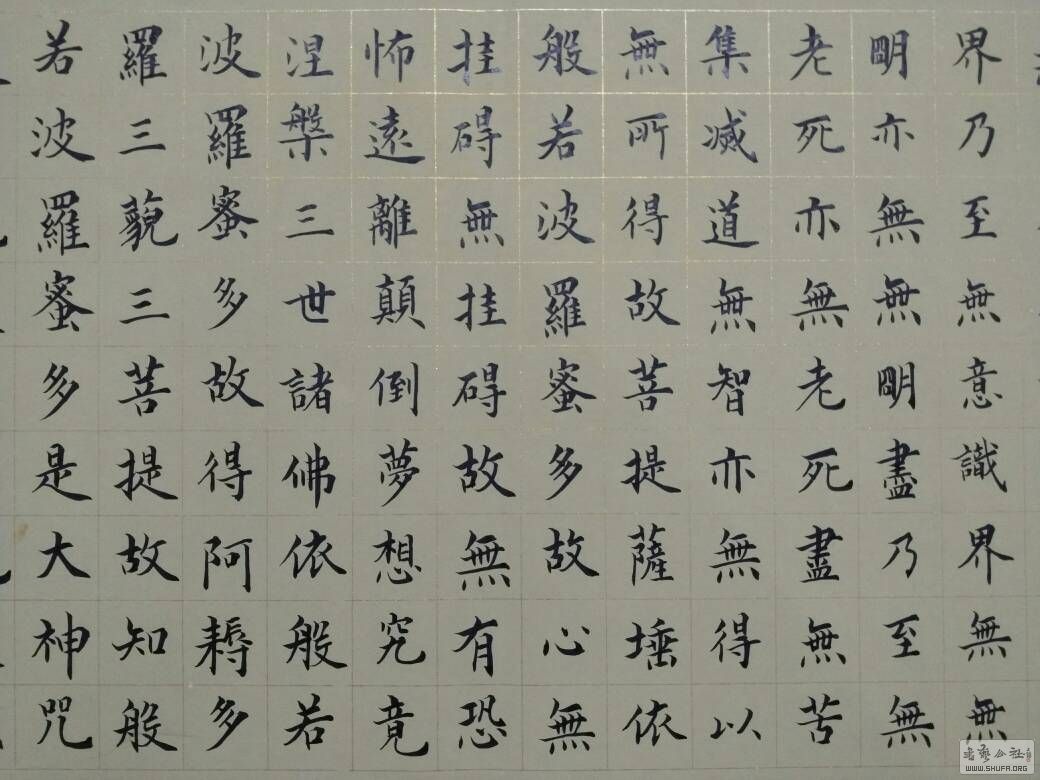 界乃至無意識界無無
明亦無無明盡乃至無
老死亦無老死盡無苦
集滅道無智亦無得以
無所得故菩提薩埵依
般若波羅蜜多故心無
挂碍無挂碍故無有恐
怖遠離顛倒夢想究竟
涅槃三世諸佛依般若
波羅蜜多故得阿耨多
羅三藐三菩提故知般
若波羅蜜多是大神咒
书藝公社
WWW.SHUFA.ORG